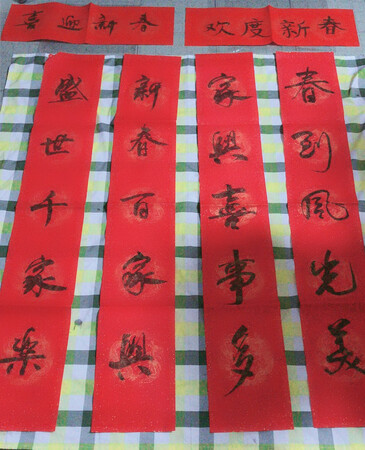 喜迎新春
欢度新春
春到風光美
家興喜事多
新春百家興
盛世千家樂